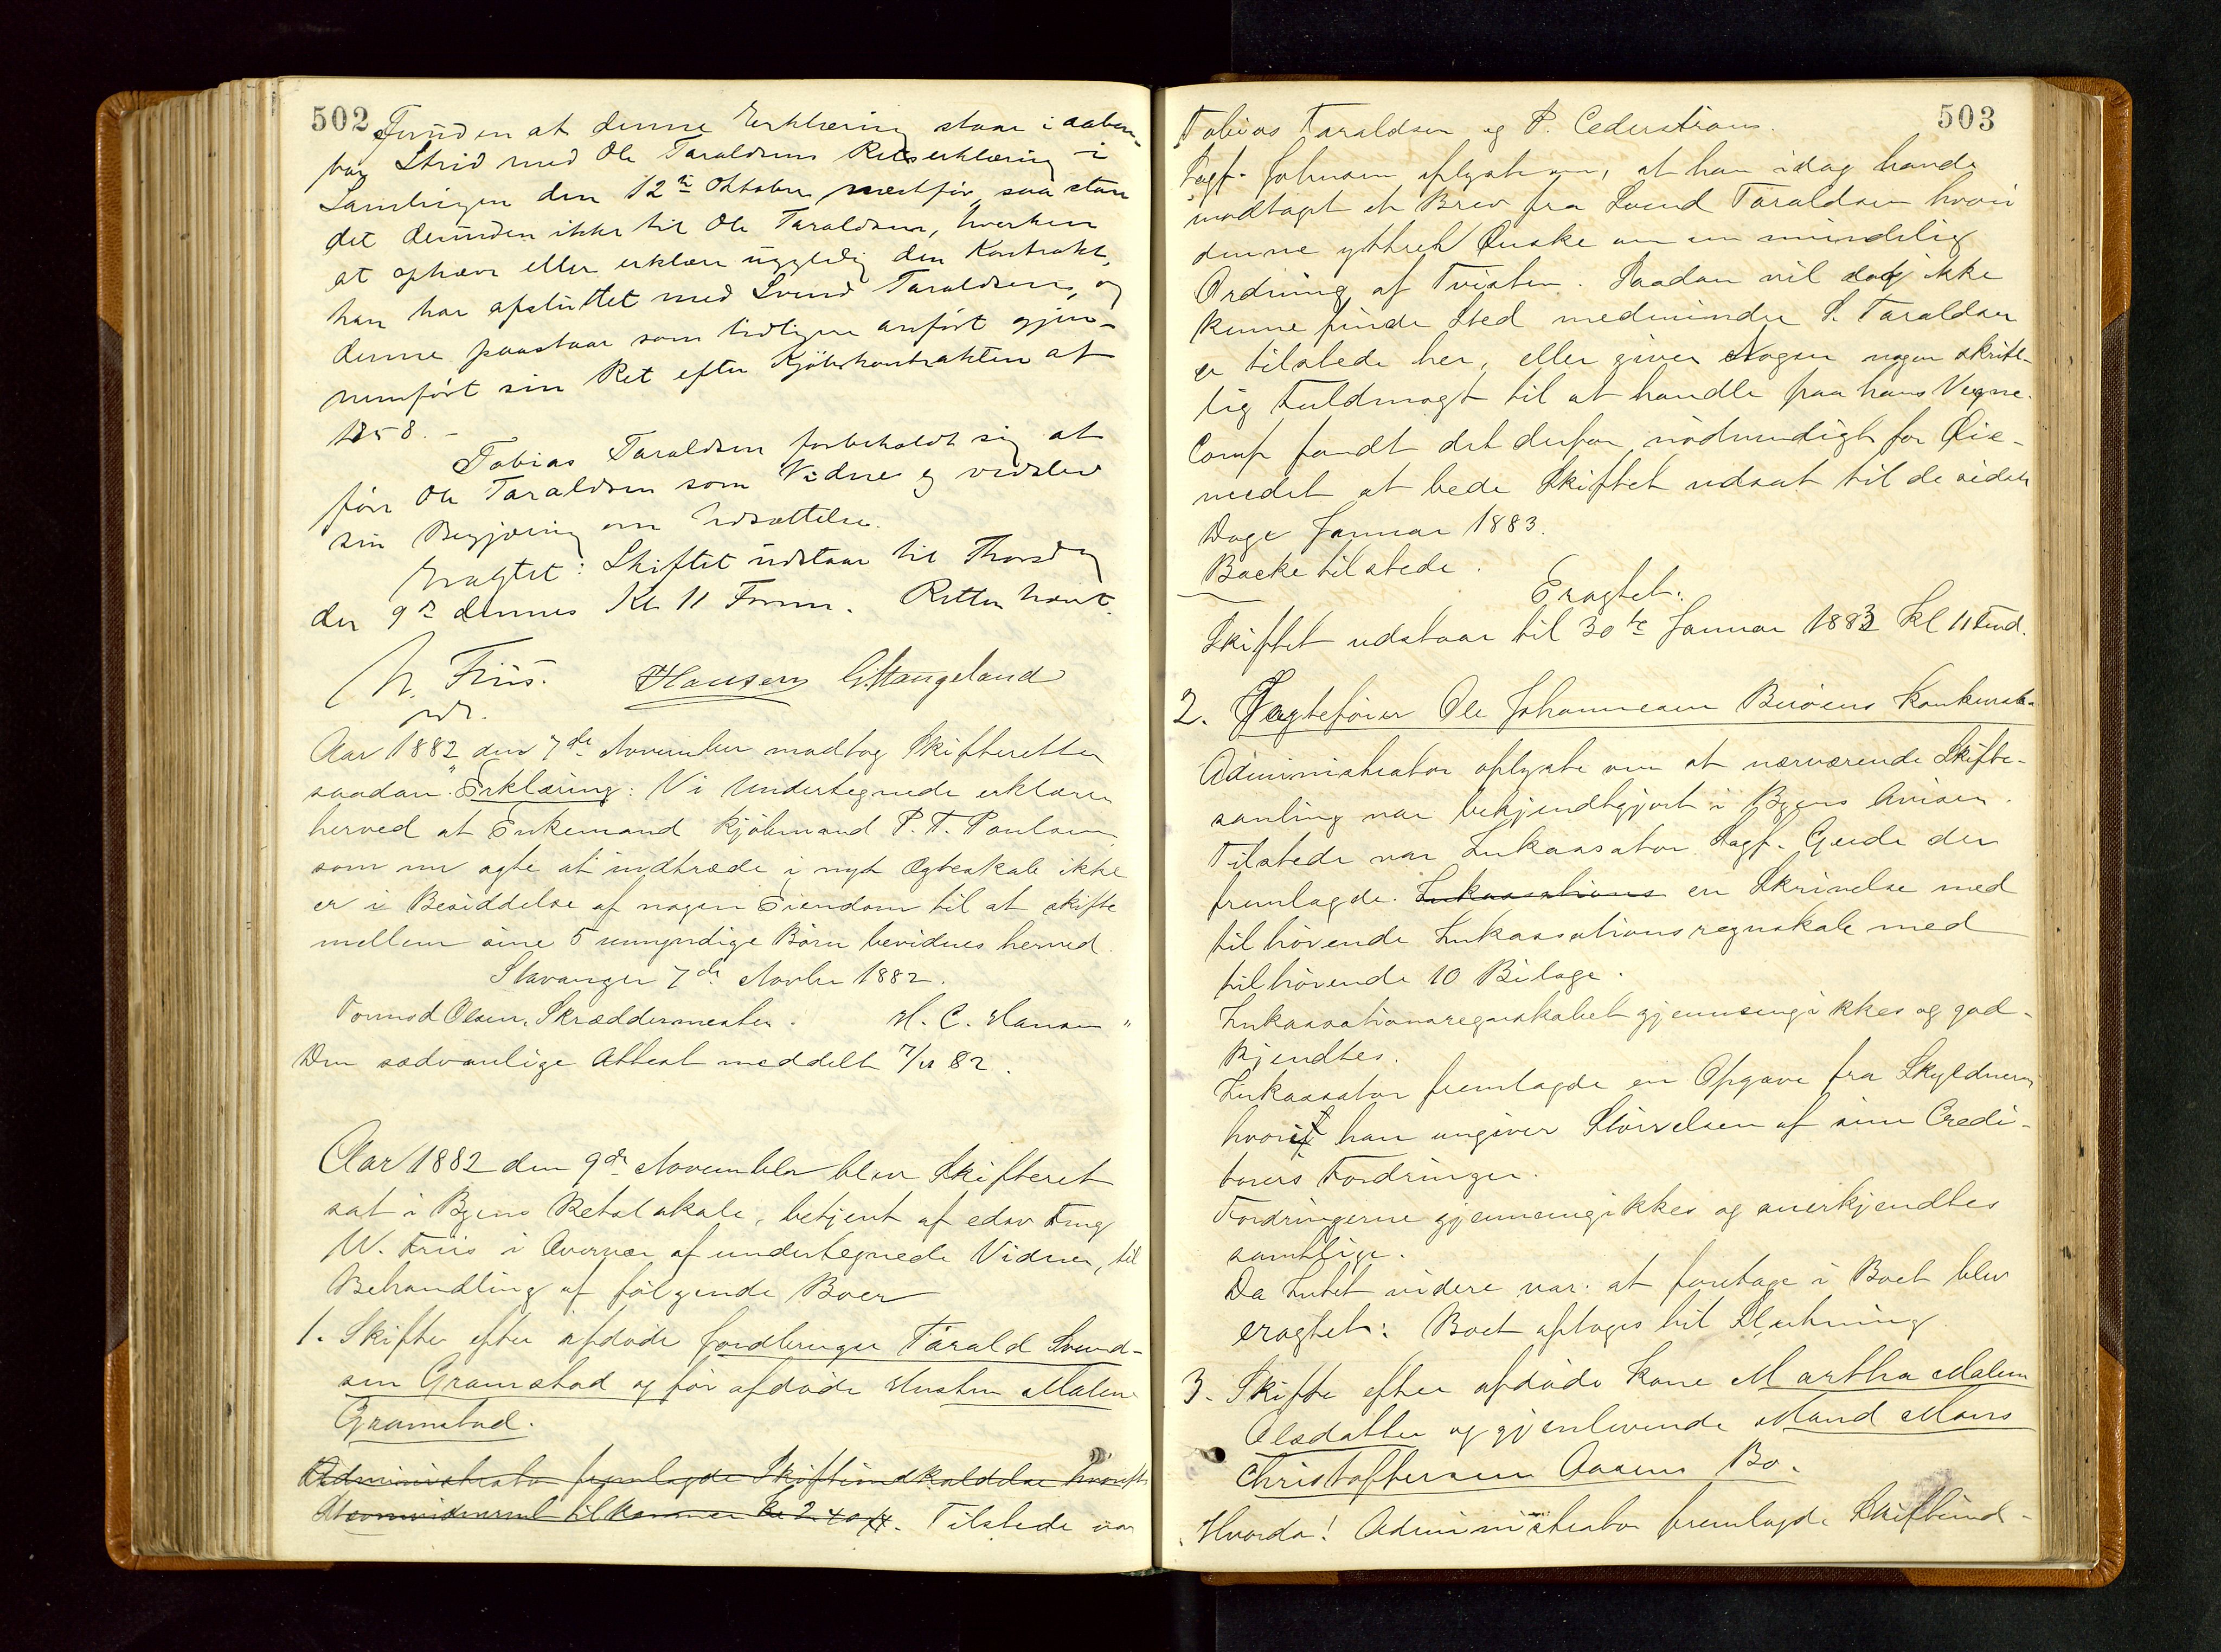 502
Foruden at denne Erklæring staar i aaben-
bar Strid med Ole Taraldsens Retserklæring i
Samlingen den 12te Oktober næstfør, saa staar
det desuden ikke til Ole Taraldsen, hverken
at ophæve eller erklære ugyldig den Kontrakt,
han har afsluttet med Svend Taraldsen, og
denne paastaar som tidligere anført gjen-
nemført sin Ret efter Kjøbekontrakten af
1858. -
Tobias Taraldsen forbeholdt sig at
føre Ole Taraldsen som Vidne og vedblev
sin Begjæring om Udsættelse.
Eragtet: Skiftet udstaar til Thorsdag
den 9de dennes Kl 11 Form. Retten hævet.
W. Friis.
Hansen G. Haugeland
Aar 1882 den 7de November modtog Skifteretten
saadan "Erklæring: Vi Undertegnede erklærer
herved at Enkemand Kjøbmand P. T. Poulsen
som nu agte at indtræde i nyt Ægteskab ikke
er i Besiddelse af nogen Eiendom til at skifte
mellem sine 5 umyndige Børn bevidnes herved.
Stavanger 7de Novbr 1882.
Tormod Olsen, Skræddermester. H. C. Hansen "
Den sædvanlige Attest meddelt 7/11 82.
Aar 1882 den 9de November blev Skifteret
sat i Byens Retslokale, betjent af edsv Fmg
W. Friis i Overvær af undertegnede Vidner, til
Behandling af følgende Boer
1. Skifte efter afdøde Jordbruger Tarald Svend-
sen Gramstad og før afdøde Hustru Malene
Gramstad.
Administrator fremlagde Skifteindkaldelse hvorefter
til kommer Kr 2.40. Tilstede var
503
Tobias Taraldsen og P. Cederstrøm.
Sagf. Johnsen oplyste om, at han idag havde
modtaget et Brev fra Svend Taraldsen hvori
denne yttret Ønske om en mindelig
Ordning af Tvisten. Saadan vil dog ikke
kunne finde Sted medmindre S. Taraldsen
er tilstede her, eller giver Nogen nogen skrift-
lig Fuldmagt til at handle paa hans Vegne.
Comp fandt det derfor nødvendigt for Øie-
medet at bede Skiftet udsat til de sidste
Dage Januar 1883.
Backe tilstede.
Eragtet:
Skiftet udstaar til 30te Januar 1883 Kl 11 Fmd.
2. Fragtefører Ole Johannesen Buøens Konkursbo
Administrator oplyste om at nærværende Skifte-
samling var bekjendtgjort i Byens Aviser.
Tilstede var Inkassator Sagf. Gjerde der
fremlagde Inkassations en Skrivelse med
tilhørende Inkassationsregnskab med
tilhørende 10 Bilage.
Inkassationsregnskabet gjennemgikkes og god-
kjendtes.
Inkassator fremlagde en Opgave fra Skyldneren
hvori han angiver Størrelsen af sine Credi-
torers Fordringer.
Fordringerne gjennemgikkes og anerkjendtes
samtlige.
Da Intet videre var at foretage i Boet blev
eragtet: Boet optages til Slutning
3. Skifte efter afdøde Kone Martha Malene
Olsdatter og gjenlevende Mand Mons
Christoffersen Aasens Bo.
Hvorda! Administrator fremlagde Skifteind-